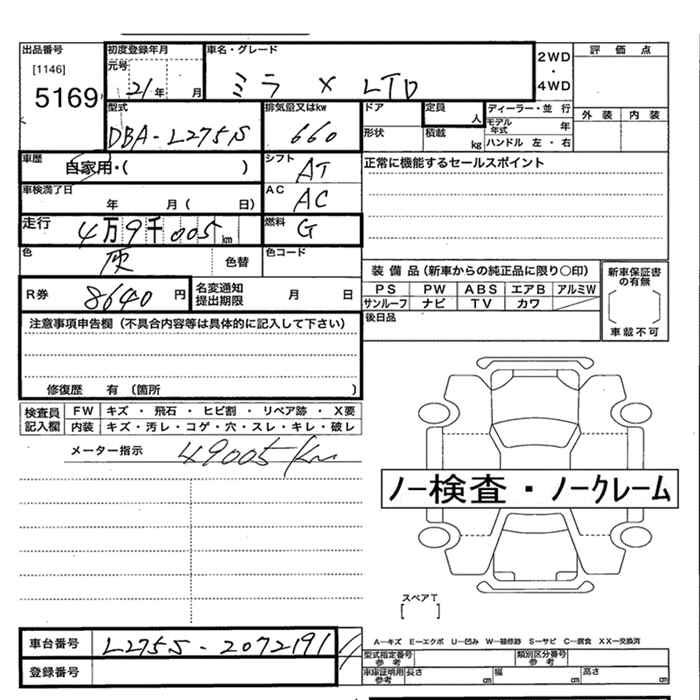 出品番号 初度登録年月 車名・グレード 2WD・4WD 評価点
[1146] 元号
5169 21年 月 ミラ X LTD
型式 排気量又はkw ドア 定員 人 ディーラー・並行 外装 内装
DBA-L275S 660 形状 積載 kg モデル年式 年
ハンドル 左・右
車歴 自家用・( ) シフト AT 正常に機能するセールスポイント
車検満了日 年 月( 日) AC AC
走行 4万9千005km 燃料 G
色 灰 色替 色コード
R券 8640円 名変通知提出期限 月 日
装備品(新車からの純正品に限り○印) 新車保証書の有無
PS PW ABS エアB アルミW
サンルーフ ナビ TV カワ
後日品 車載不可
注意事項申告欄(不具合内容等は具体的に記入して下さい)
修復歴 有 (箇所 )
検査員記入欄 FW キズ・飛石・ヒビ割・リペア跡・X要
内装 キズ・汚レ・コゲ・穴・スレ・キレ・破レ
メーター指示 49005Km
ノー検査・ノークレーム
スペアT
[ ]
車台番号 L275S-2072191
登録番号
A―キズ E―エクボ U―凹み W―補修跡 S―サビ C―腐食 XX―交換済
型式指定番号 参考 類別区分番号 参考
車庫証明用 参考 長さ cm 幅 cm 高さ cm